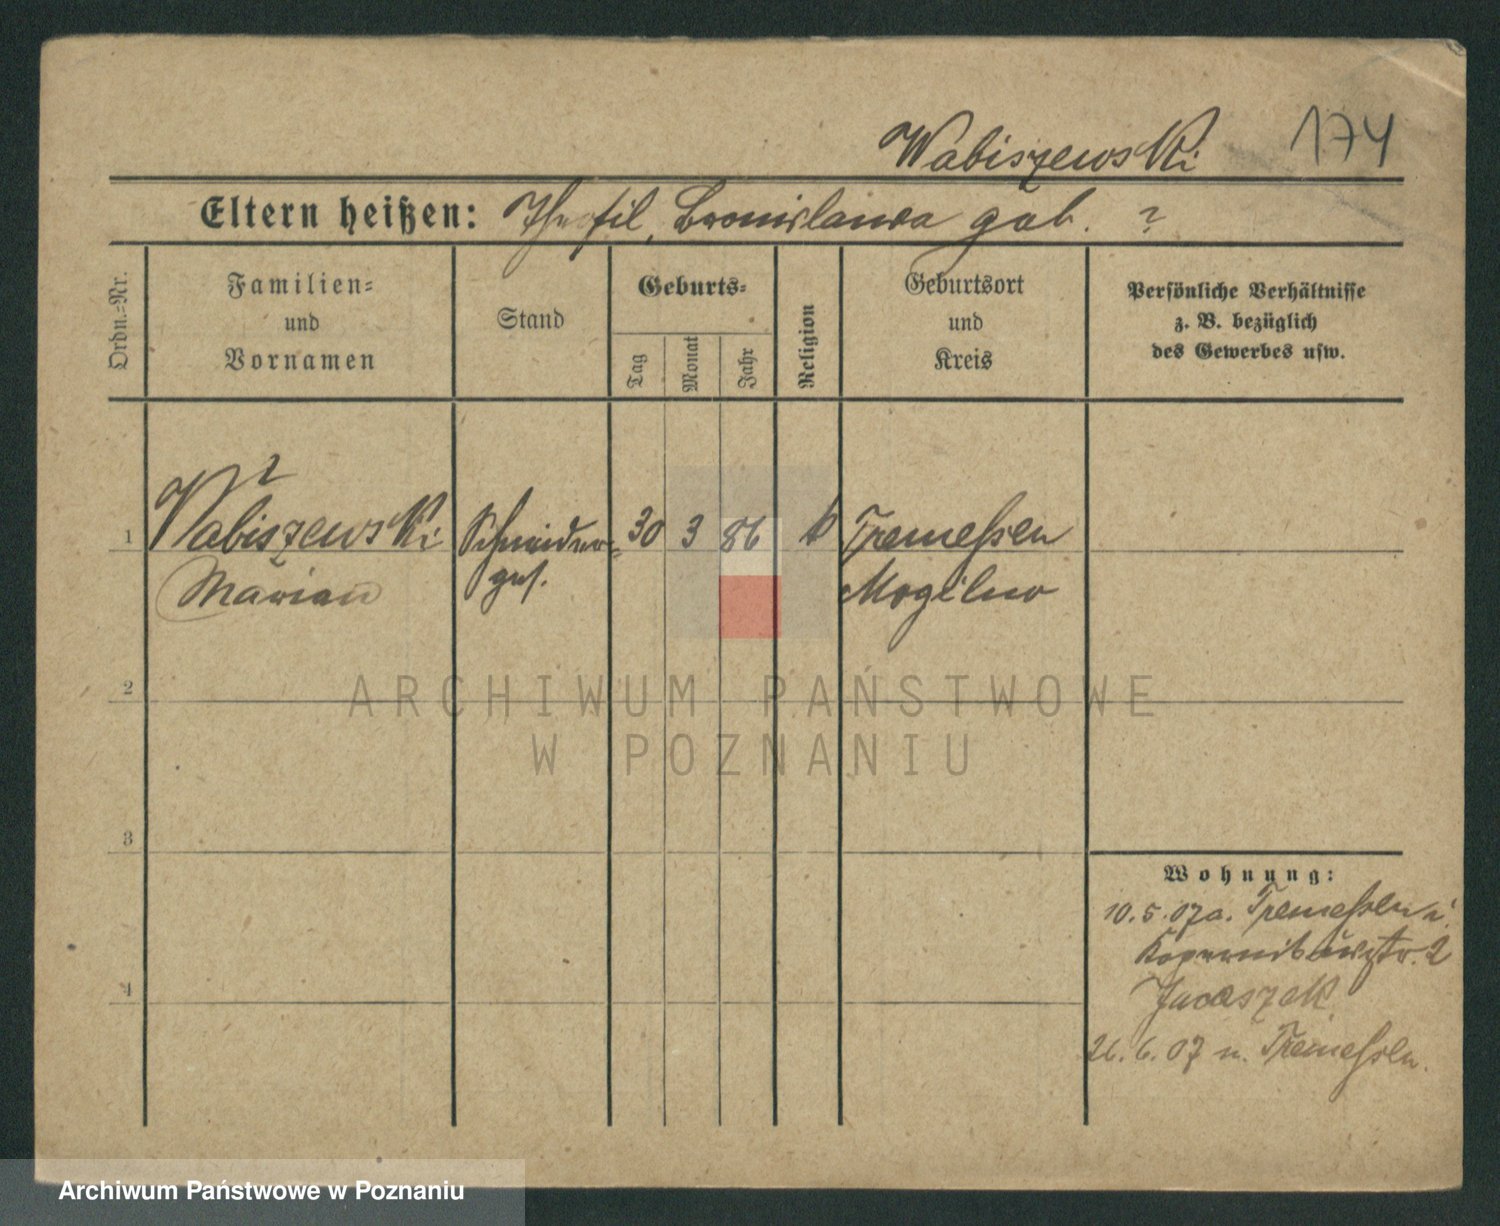 Wabiszewski 174
Eltern heißen: Theofil, Bronislawa geb. ?
Ordn.-Nr.
Familien-
und
Vornamen
Stand
Geburts-
Tag
Monat
Jahr
Religion
Geburtsort
und
Kreis
Persönliche Verhältnisse
z. B. bezüglich
des Gewerbes usw.
1 Wabiszewski Schneider- 30 3 86 k Tremessen
Marian ges. Mogilno
2
3
4
Wohnung:
10.5.07 a. Tremessen i.
Kopernikusstr. 2
26.6.07 n. Tremessen.
ARCHIWUM PAŃSTWOWE
W POZNANIU
Archiwum Państwowe w Poznaniu